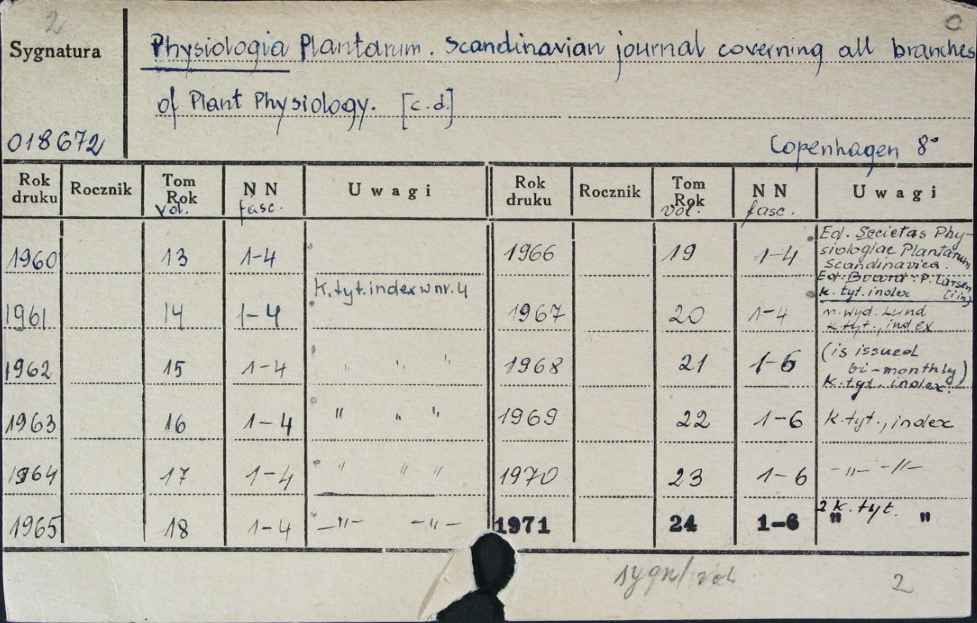 2
C
Sygnatura
Physiologia Plantarum. Scandinavian journal coverning all branches
of Plant Physiology. [c.d.]
018672
Copenhagen 8°
Rok druku Rocznik Tom Rok vol. NN fasc. Uwagi Rok druku Rocznik Tom Rok vol. NN fasc. Uwagi
1960 13 1-4
1966 19 1-4 Ed. Societas Phy-
siologiae Plantarum
Scandinavica.
Ed. Board: P. Larsen
k. tyt. index
1961 14 1-4 K. tyt. index w nr. 4
1967 20 1-4 m. wyd. Lund
k. tyt., index
1962 15 1-4 " " "
1968 21 1-6 (is issued
bi-monthly)
k. tyt. index.
1963 16 1-4 " " "
1969 22 1-6 k. tyt., index
1964 17 1-4 " " "
1970 23 1-6 -"- -"-
1965 18 1-4 -"- -"-
1971 24 1-6 2 k. tyt.
" "
sygn/vol
2